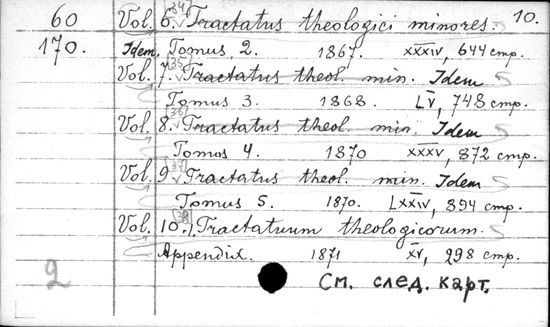 10.
60 Vol. 6. Tractatus theologici minores.
170. Idem. Tomus 2. 1867. XXXIV, 644 стр.
Vol. 7. Tractatus theol. min. Idem
Tomus 3. 1868. LV, 748 стр.
Vol. 8. Tractatus theol. min. Idem
Tomus 4. 1870 XXXV, 872 стр.
Vol. 9. Tractatus theol. min. Idem
Tomus 5. 1870. LXXIV, 894 стр.
Vol. 10. Tractatuum theologicorum.
Appendix. 1871 XV, 298 стр.
2 См. след. карт.